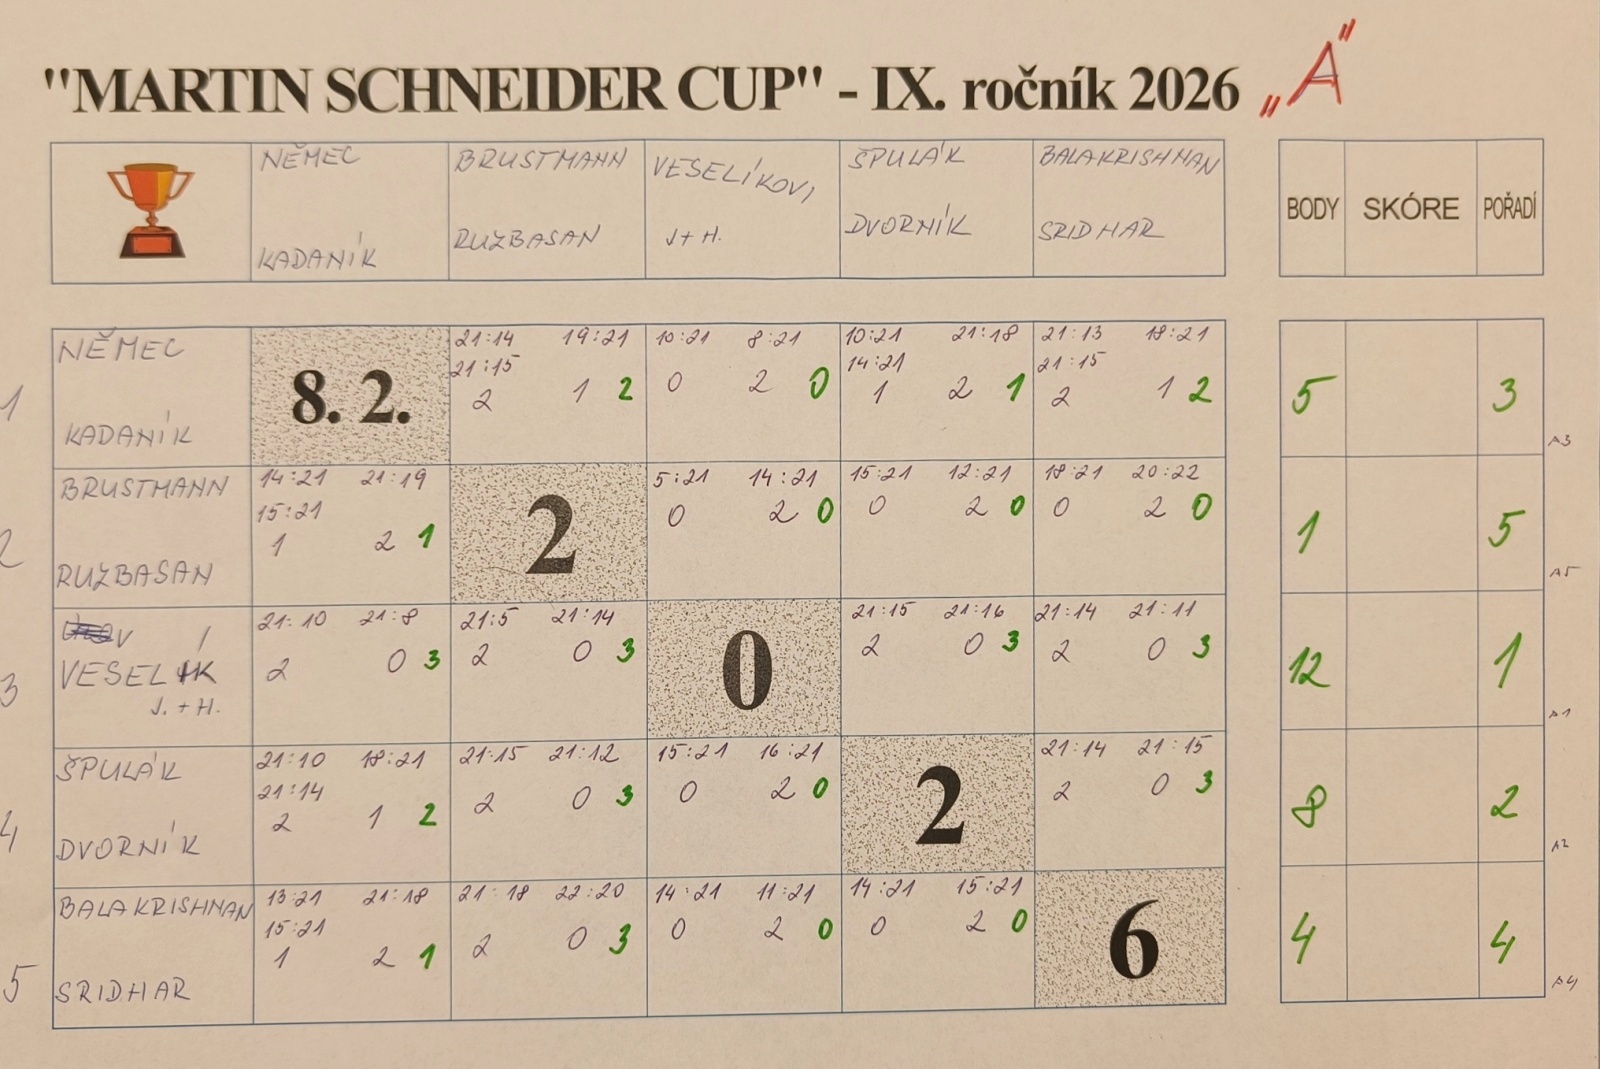 "MARTIN SCHNEIDER CUP" - IX. ročník 2026 „A"
NĚMEC BRUSTMANN VESELÍKOVI ŠPULÁK BALAKRISHNAN
KADANÍK RUZBASAN J+H. DVORNÍK SRIDHAR
BODY SKÓRE POŘADÍ
NĚMEC 21:14 19:21 10:21 8:21 10:21 21:18 21:13 18:21
21:15 14:21 21:15
1 8. 2. 2 1 2 0 2 0 1 2 1 2 1 2 5 3
KADANÍK A3
BRUSTMANN 14:21 21:19 5:21 14:21 15:21 12:21 18:21 20:22
15:21
2 1 2 1 2 0 2 0 0 2 0 0 2 0 1 5
RUZBASAN A5
21:10 21:8 21:5 21:14 21:15 21:16 21:14 21:11
3 VESELÍK 2 0 3 2 0 3 0 2 0 3 2 0 3 12 1
J. + H. A1
ŠPULÁK 21:10 18:21 21:15 21:12 15:21 16:21 21:14 21:15
21:14
4 2 1 2 2 0 3 0 2 0 2 2 0 3 8 2
DVORNÍK A2
BALAKRISHNAN 13:21 21:18 21:18 22:20 14:21 11:21 14:21 15:21
15:21
5 1 2 1 2 0 3 0 2 0 0 2 0 6 4 4
SRIDHAR A4